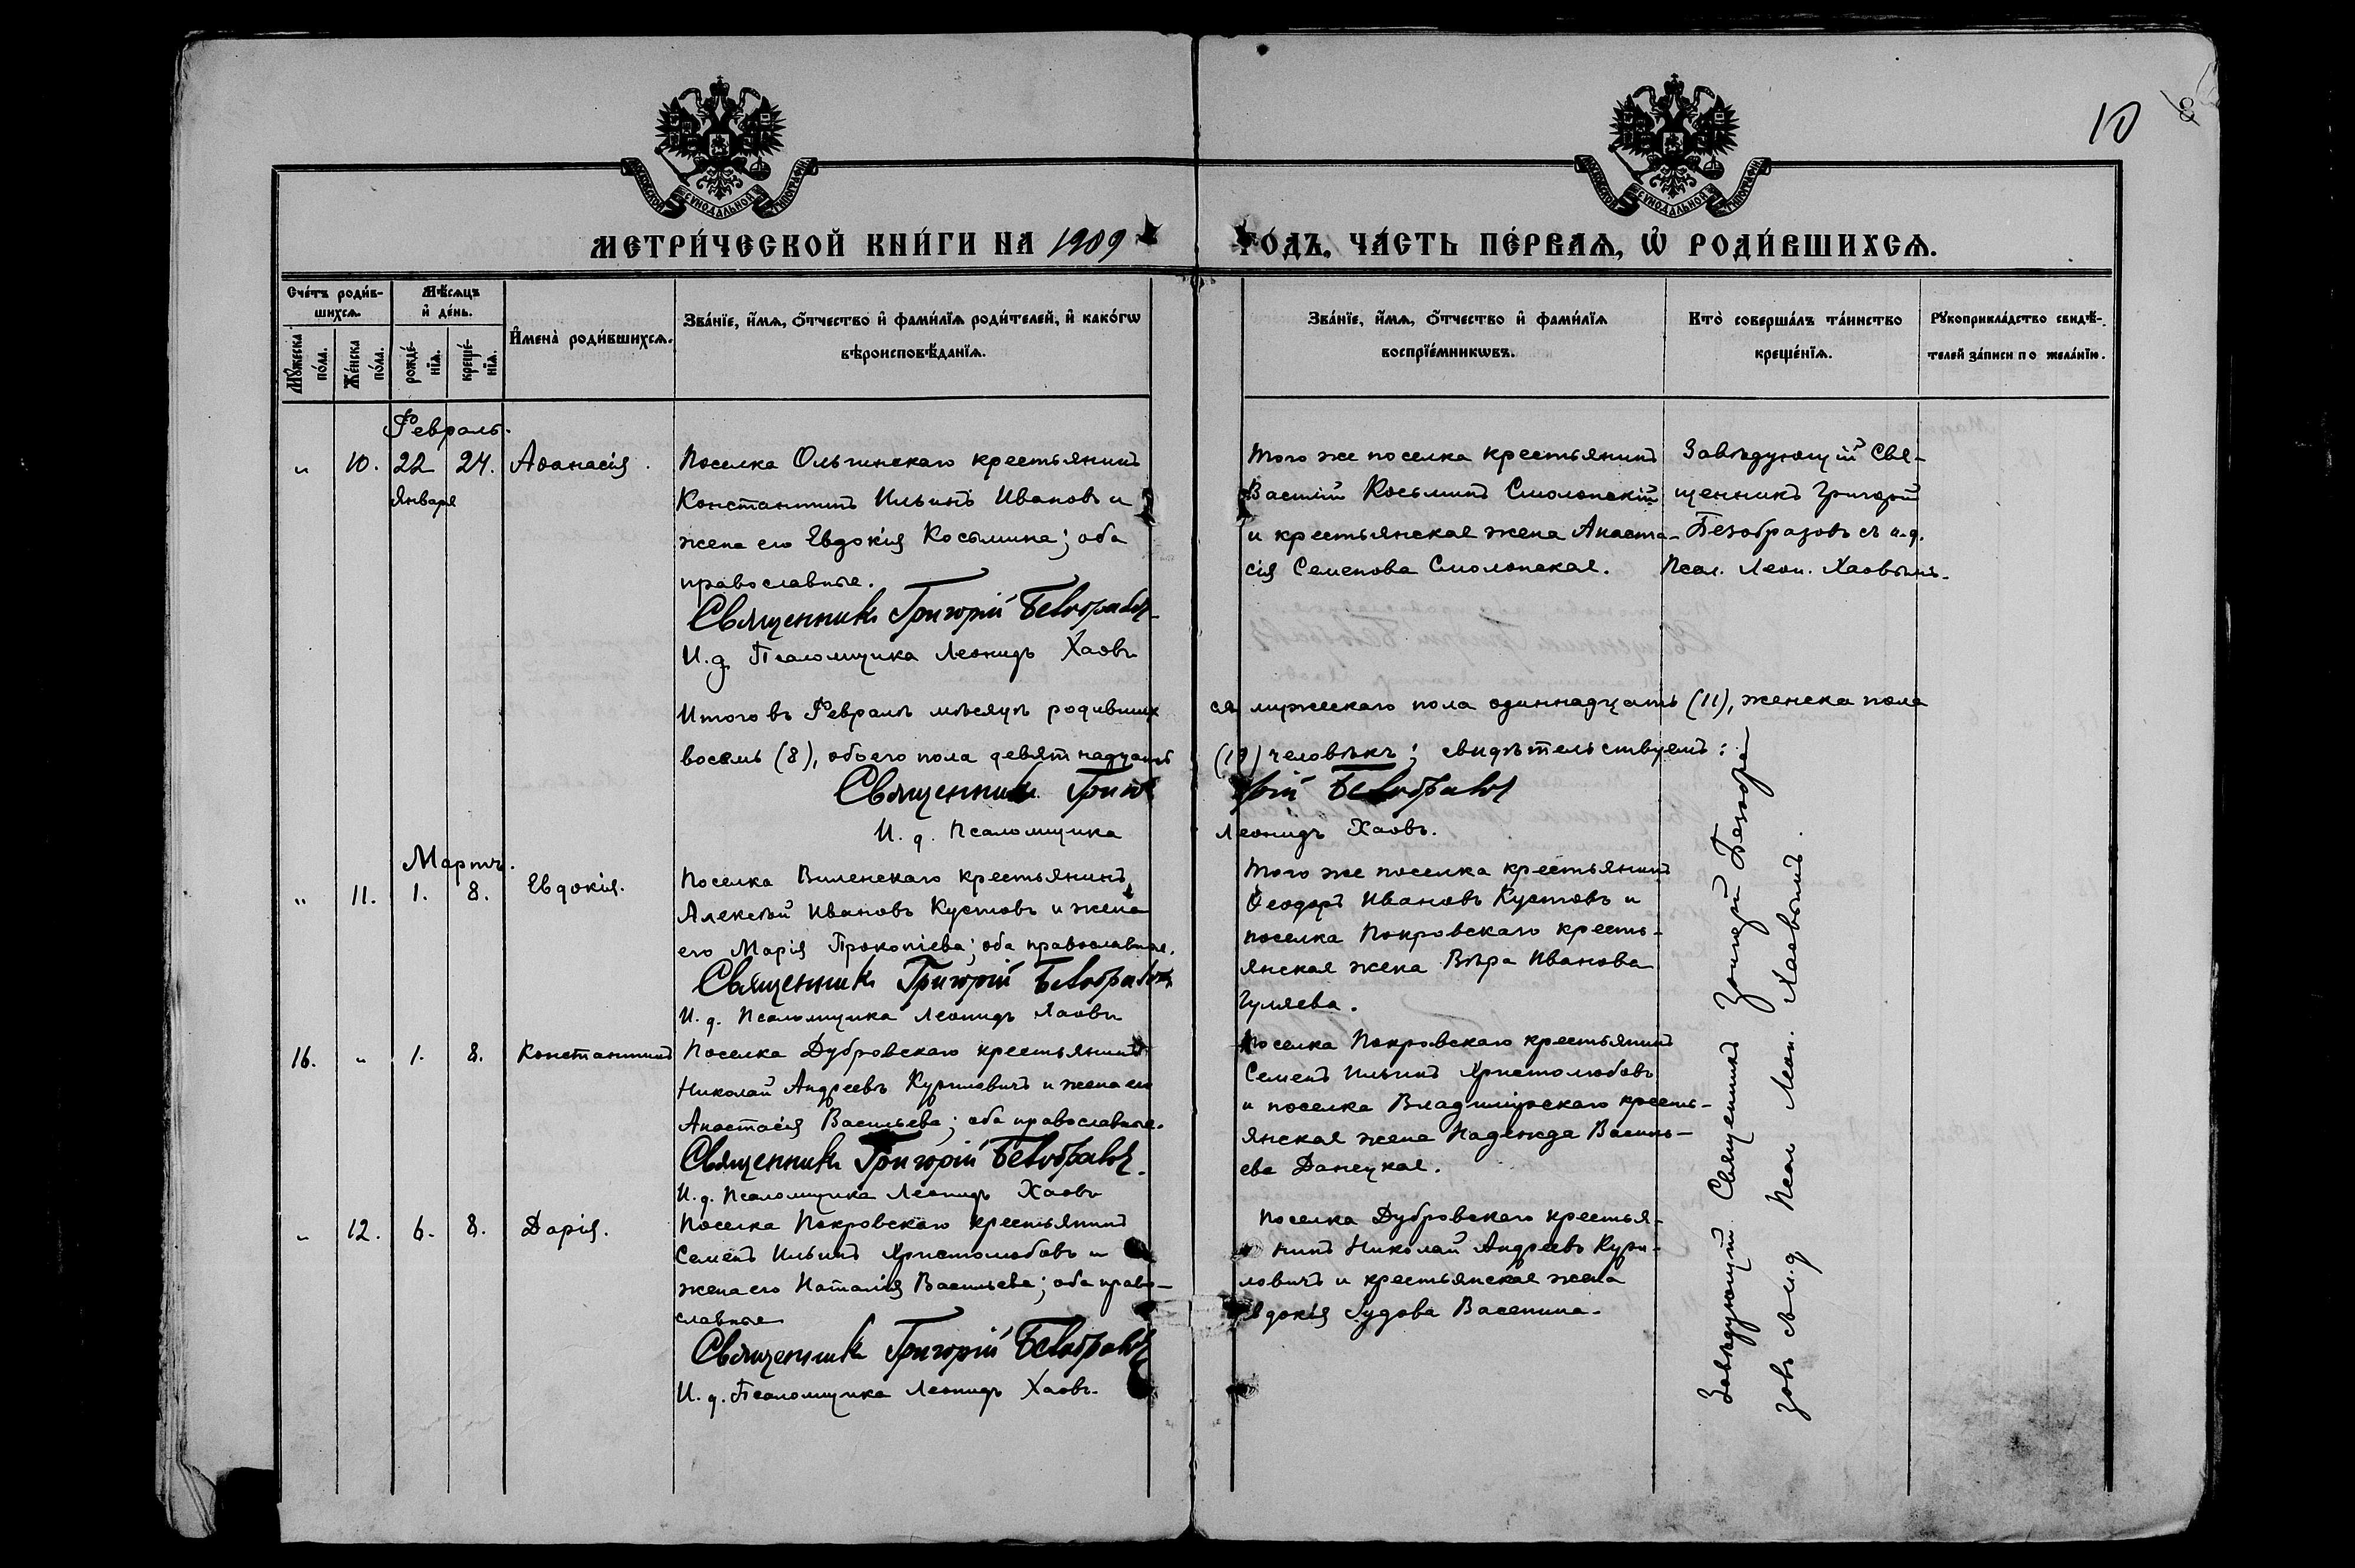 10
МОСКОВСКОЙ СѴНОДАЛЬНОЙ ТИПОГРАФІИ
МОСКОВСКОЙ СѴНОДАЛЬНОЙ ТИПОГРАФІИ
МЕТРИ́ЧЕСКОЙ КНИ́ГИ НА 1909 ГО́ДЪ, ЧА́СТЬ ПЕ́РВАѦ, Ѡ҆ РОДИ́ВШИХСѦ.
Сче́тъ роди́в-
шихсѧ.
Мꙋ́жеска
по́ла.
Же́нска
по́ла.
Мѣ́сѧцъ
и҆ де́нь.
рожде́-
нїѧ.
креще́-
нїѧ.
И҆мена̀ роди́вшихсѧ.
Зва́нїе, и҆́мѧ, ѻ҆́тчество и҆ фами́лїѧ роди́телей, и҆ како́гѡ
вѣроисповѣ́данїѧ.
Зва́нїе, и҆́мѧ, ѻ҆́тчество и҆ фами́лїѧ
воспрїе́мникѡвъ.
Кто̀ соверша́лъ та́инство
креще́нїѧ.
Рꙋкоприкла́дство свидѣ́-
телей за́писи по жела́нїю.
Февраль.
" 10. 22 24. Аѳанасія.
Января
Поселка Ольгинскаго крестьянинъ
Константинъ Ильинъ Ивановъ и
жена его Евдокія Косьмина; оба
православные.
Священникъ Григорій Безобразовъ
И. д. Псаломщика Леонидъ Хаовъ
Того же поселка крестьянинъ
Василій Косьминъ Смоленскій
и крестьянская жена Анаста-
сія Семенова Смоленская.
Завѣдующій Свя-
щенникъ Григорій
Безобразовъ съ и. д.
Псал. Леон. Хаовымъ.
Итого въ Февралѣ мѣсяцѣ родивших
ся мужескаго пола одиннадцать (11), женска пола
восемь (8), обоего пола девятнадцать
(19) человѣкъ; свидѣтельствуемъ:
Священникъ Григорій Безобразовъ
И. д. Псаломщика Леонидъ Хаовъ.
Мартъ.
" 11. 1. 8. Евдокія.
Поселка Виленскаго крестьянинъ
Алексѣй Ивановъ Кустовъ и жена
его Марія Прокопіева; оба православные.
Священникъ Григорій Безобразовъ
И. д. Псаломщика Леонидъ Хаовъ
Того же поселка крестьянинъ
Ѳеодоръ Ивановъ Кустовъ и
поселка Покровскаго кресть-
янская жена Вѣра Иванова
Гуляева.
16. " 1. 8. Константинъ
Поселка Дубровскаго крестьянинъ
Николай Андреевъ Куриловичъ и жена его
Анастасія Васильева; оба православные.
Священникъ Григорій Безобразовъ.
И. д. Псаломщика Леонидъ Хаовъ
Поселка Покровскаго крестьянинъ
Семенъ Ильинъ Христолюбовъ
и поселка Владимірскаго кресть-
янская жена Надежда Василь-
ева Данецкая.
" 12. 6. 8. Дарія.
Поселка Покровскаго крестьянинъ
Семенъ Ильинъ Христолюбовъ и
жена его Наталія Васильева; оба право-
славные
Священникъ Григорій Безобразовъ
И. д. Псаломщика Леонидъ Хаовъ.
Поселка Дубровскаго крестья-
нинъ Николай Андреевъ Кури-
ловичъ и крестьянская жена
Васенина.
Завѣдующій Священникъ Григорій Безобра-
зовъ съ и. д. Псал Леон. Хаовымъ.